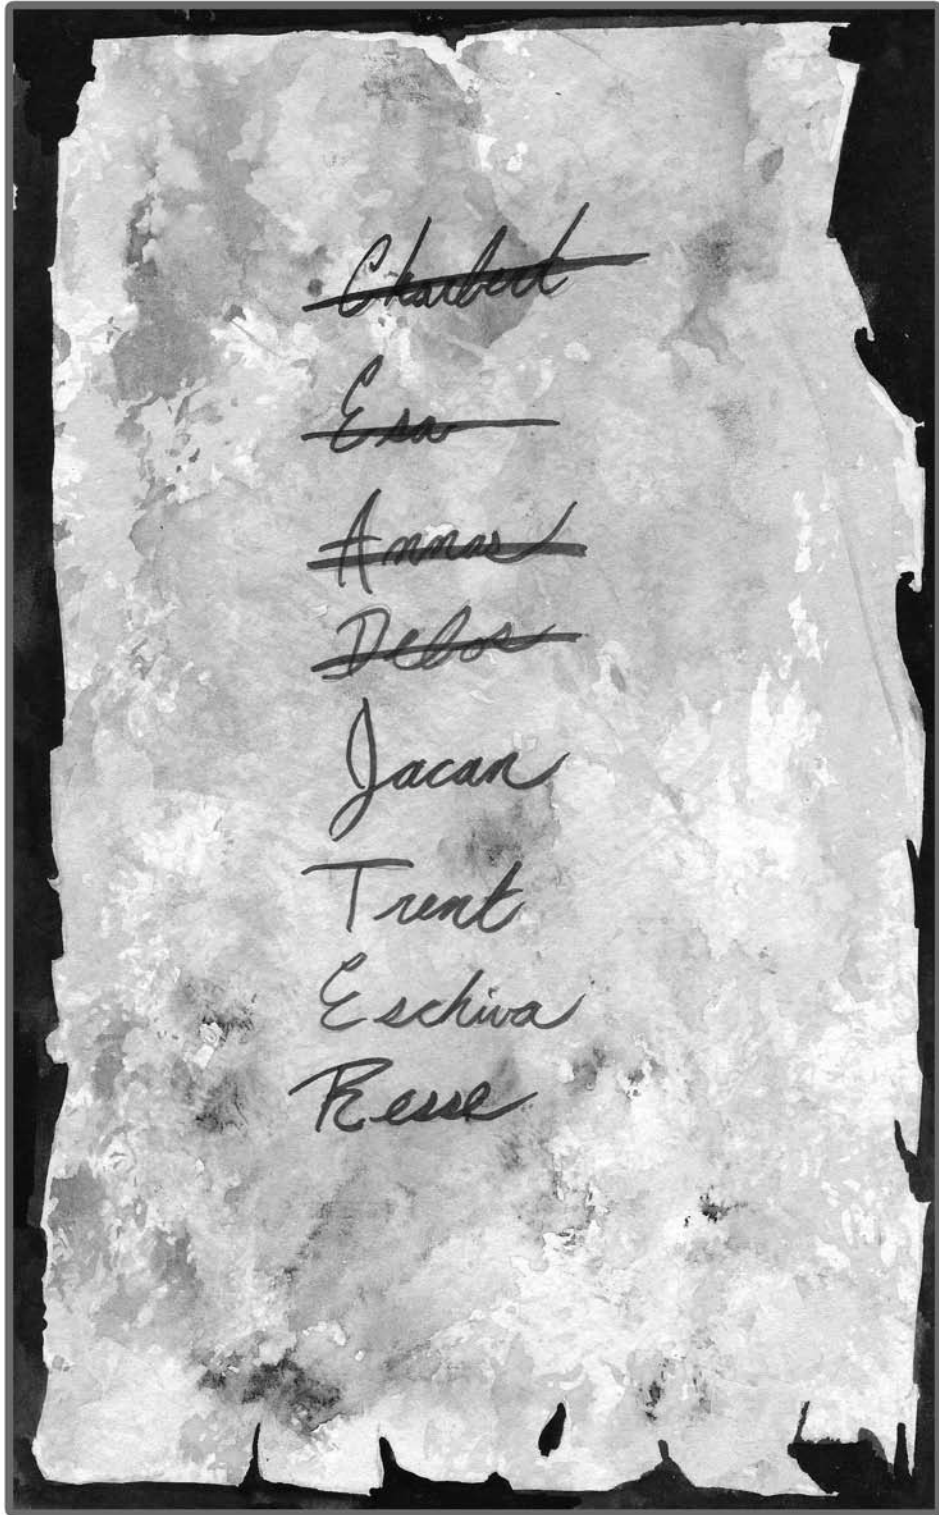 Charbert
Esa
Annas
Delos
Jacan
Trent
Eschiva
Resse